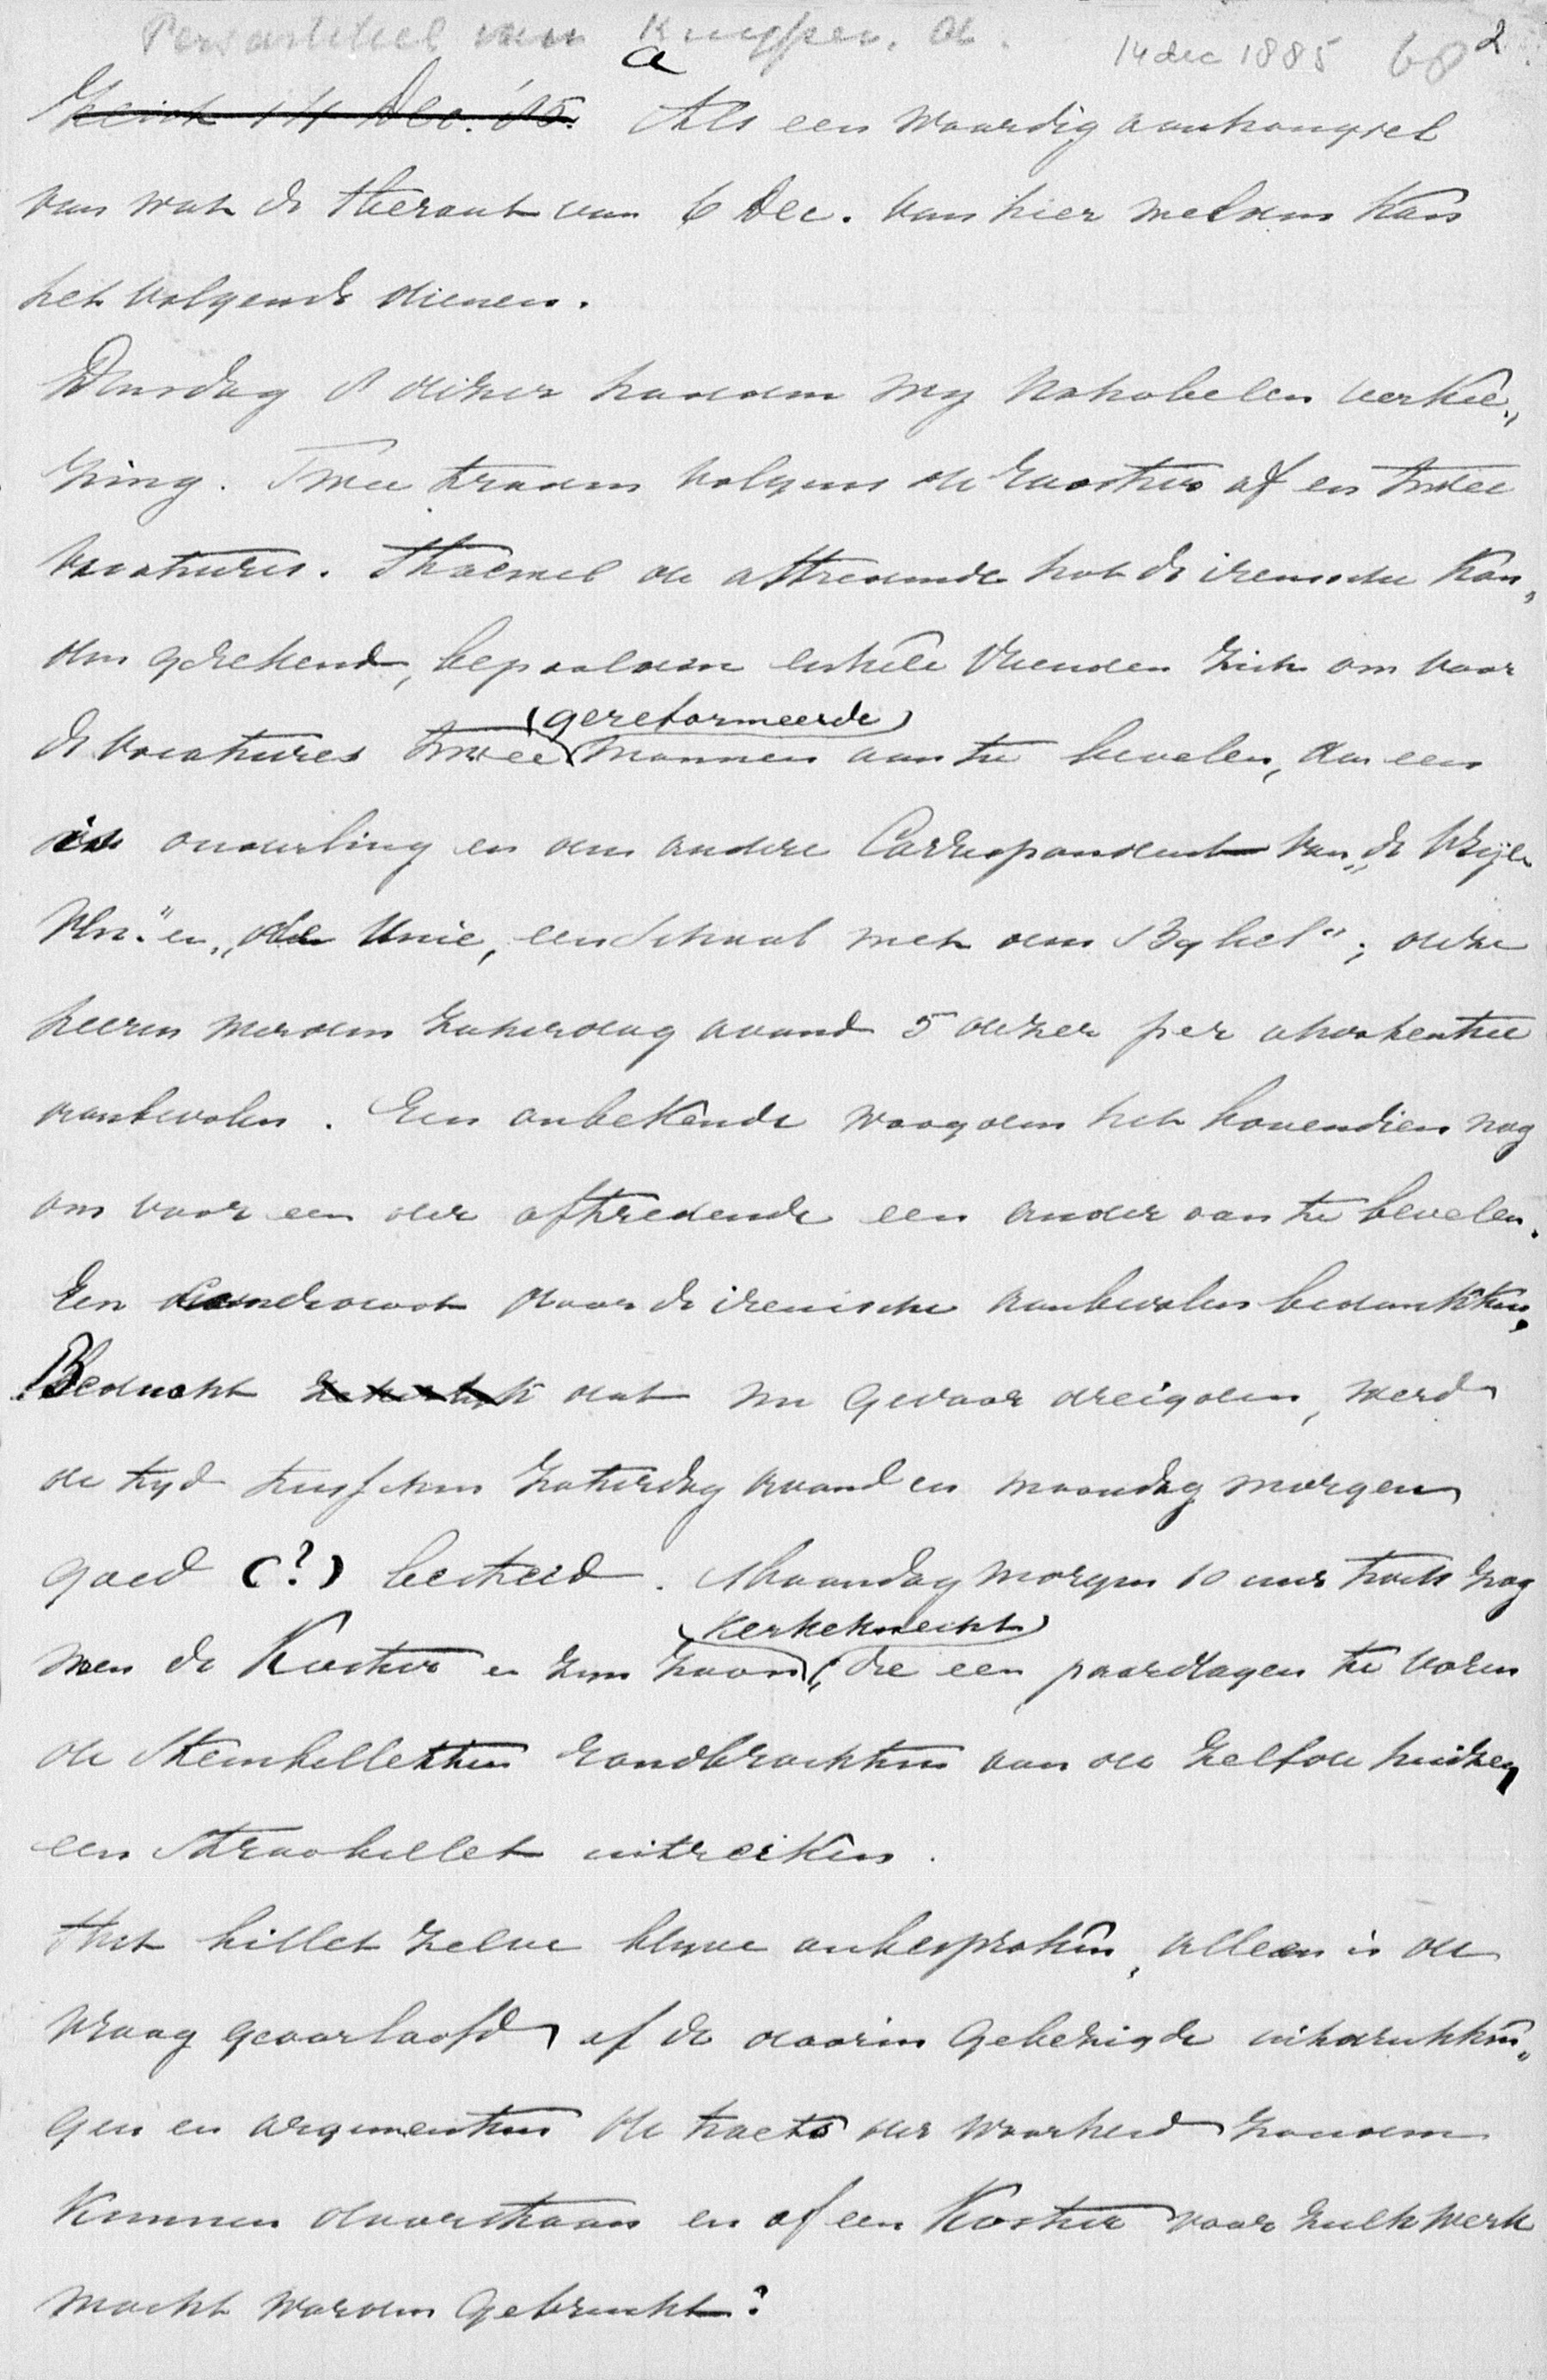 Persartikel van Kuyper. A.
14 dec 1885 68 2
a
14 Dec. '85. Als een waardig aanhangsel
van wat de Heraut van 6 Dec. van hier melden kan
het volgende dienen.
Dinsdag 8 dezer hadden wy Notabelen verkie„
zing. Twee traden volgens de rooster af en twee
vacatures. Hoewel de aftredende tot de irenische kon„
den gerekend, bepaalden enkele vrienden zich om voor
de vacatures twee (gereformeerde) mannen aan te bevelen, den een
is ouderling en den andere Correspondent van „de Vrije
Un." en „de Unie, een School met den Bybel"; deze
heeren werden zaterdag avond 5 dezer per advertentie
aanbevolen. Een onbekende waagden het bovendien nog
om voor een der aftredende een ander aan te bevelen.
Een door de irenische aanbevolen bedankten.
Beducht dat nu gevaar dreigden, werd
de tyd tusschen Zaturdag avond en maandag morgen
goed (?) besteed. Maandag morgen 10 uur toch zag
men de Koster en zyn zoon (kerkeknecht), die een paar dagen te voren
de Stembilletten rondbrachten aan de zelfde huizen
een Strooibillet uitreiken.
Het billet zelve blyve onbesproken, alleen is de
vraag geoorloofd of de daarin gebezigde uitdrukkin„
gen en argumenten de toets der waarheid zouden
kunnen doorstaan en of een Koster voor zulk werk
mocht worden gebruikt?